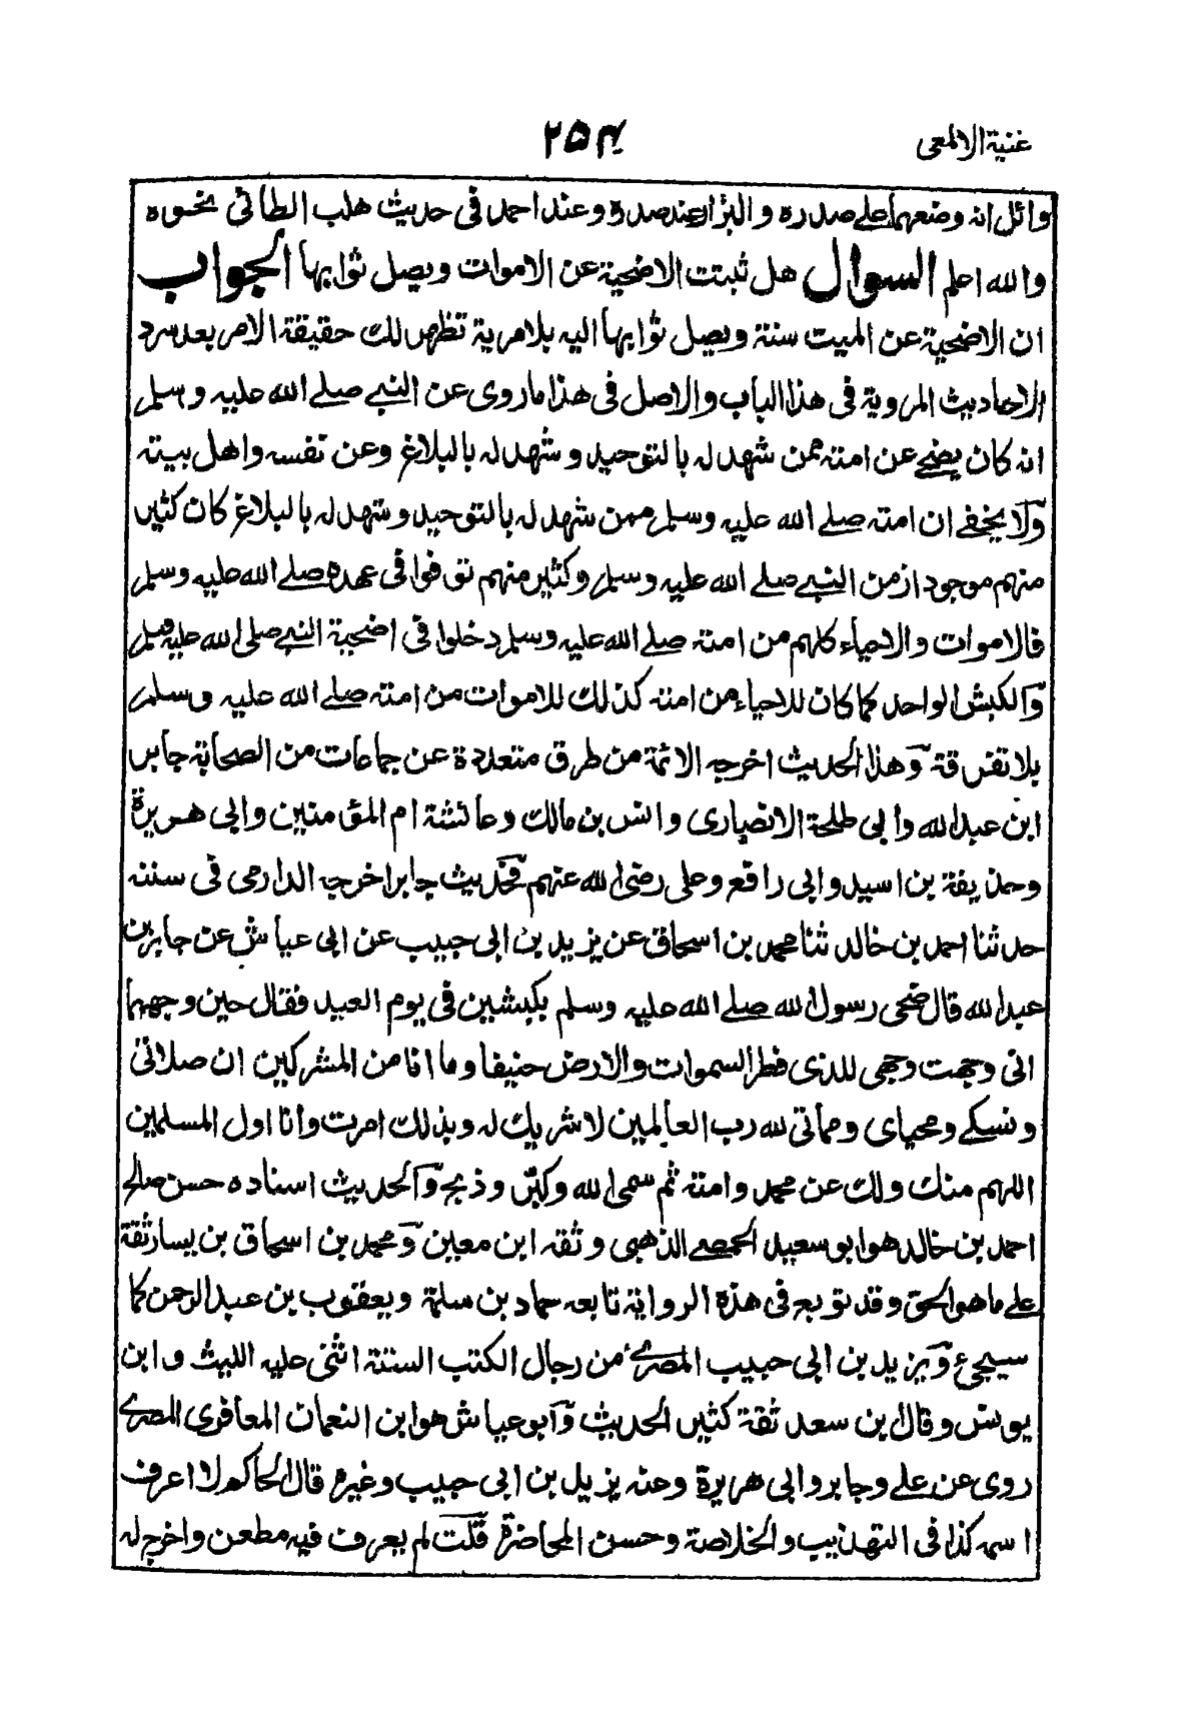 غنية الالمعى
٢٥٤
وائل انه وضعهما على صدره والبزار عند صدره وعند احمد فى حديث هلب الطائى نحوه
والله اعلم السوال هل ثبتت الاضحية عن الاموات ويصل ثوابها الجواب
ان الاضحية عن الميت سنة ويصل ثوابها اليه بلا مرية تظهر لك حقيقة الامر بعد سرد
الاحاديث المروية فى هذا الباب والاصل فى هذا ماروى عن النبى صلى الله عليه وسلم
انه كان يضحى عن امته ممن شهد له بالتوحيد وشهد له بالبلاغ وعن نفسه واهل بيته
ولا يخفى ان امته صلى الله عليه وسلم ممن شهد له بالتوحيد وشهد له بالبلاغ كان كثير
منهم موجود ازمن النبى صلى الله عليه وسلم وكثير منهم توفوا فى عهده صلى الله عليه وسلم
فالاموات والاحياء كلهم من امته صلى الله عليه وسلم دخلوا فى اضحية النبى صلى الله عليه وسلم
والكبش الواحد كما كان للاحياء من امته كذلك للاموات من امته صلى الله عليه وسلم
بلا تفرقة وهذا الحديث اخرجه الائمة من طرق متعددة عن جماعات من الصحابة جابر
ابن عبد الله وأبى طلحة الانصارى وانس بن مالك وعائشة ام المؤمنين وابى هريرة
وحذيفة بن اسيد وابى رافع وعلى رضى الله عنهم فحديث جابر اخرجه الدارمى فى سننه
حدثنا احمد بن خالد ثنا محمد بن اسحاق عن يزيد بن ابى حبيب عن ابى عياش عن جابر بن
عبد الله قال ضحى رسول الله صلى الله عليه وسلم بكبشين فى يوم العيد فقال حين وجههما
انى وجهت وجهى للذى فطر السموات والارض حنيفا وما انا من المشركين ان صلاتى
ونسكى ومحياى ومماتى لله رب العالمين لا شريك له وبذلك امرت وانا اول المسلمين
اللهم منك ولك عن محمد وامته ثم سمى الله وكبر وذبح والحديث اسناده حسن صالح
احمد بن خالد هو ابو سعيد الحمصى الذهبى وثقه ابن معين ومحمد بن اسحاق بن يسار ثقة
على ما هو الحق وقد توبع فى هذه الرواية تابعه حماد بن سلمة ويعقوب بن عبد الرحمن كما
سيجئ ويزيد بن ابى حبيب المصرى من رجال الكتب الستة اثنى عليه الليث وابن
يونس وقال ابن سعد ثقة كثير الحديث وابو عياش هو ابن النعمان المعافرى المصرى
روى عن على وجابر وابى هريرة وعنه يزيد بن ابى حبيب وغيره قال الحاكم لا اعرف
اسمه كذا فى التهذيب والخلاصة وحسن المحاضرة قلت لم يعرف فيه مطعن واخرج له